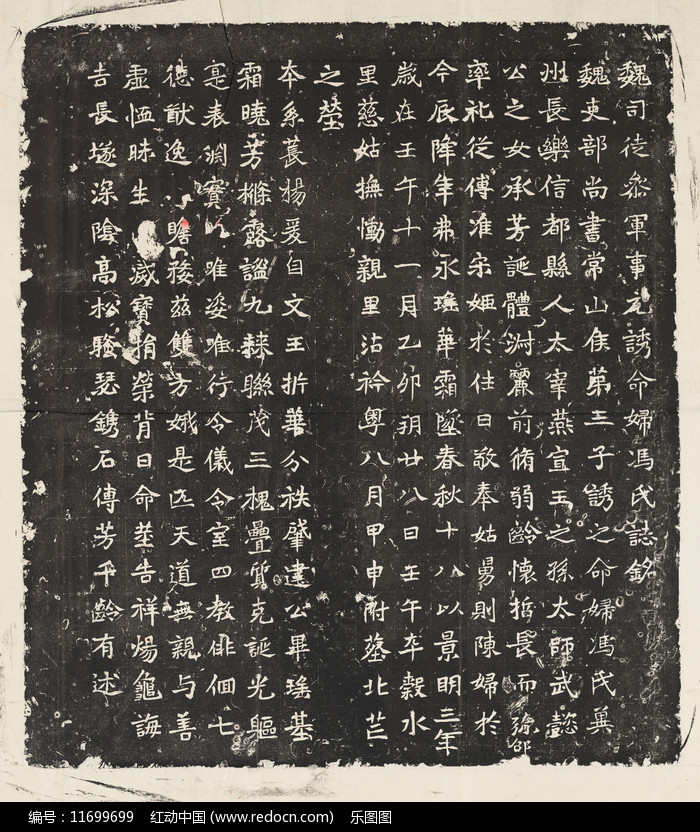 魏司徒叅軍事元誘命婦馮氏誌銘
魏吏部尚書常山侯第三子誘之命婦馮氏兾
州長樂信都縣人太宰燕宣王之孫太師武懿
公之女承芳誕體渊麗前脩弱齡懷哲長而弥邵
率礼從傅准宋姬於往日敬奉姑舅則陳婦於
今辰降年弗永瑤華霜墜春秋十八以景明三年
歲在壬午十一月乙卯朔廿八日壬午卒穀水
里慈姑撫慟親里沾衿粵八月甲申附葬北芒
之塋
本系萇楊爰自文王折華分祑肈建公畢瑤基
霜曉芳櫾露謐九棘聯茂三槐疊質克誕光軀
寔表渊實唯姿唯行令儀令室四教俳佪七
德猷逸瞻彼茲雙方娥是匹天道無親与善
虛恤昧生寶捐榮背日命莝告祥煬龜誨
吉長埏深陰高松騷瑟鐫石傳芳千齡有述
编号：11699699 红动中国 (www.redocn.com) 乐图图